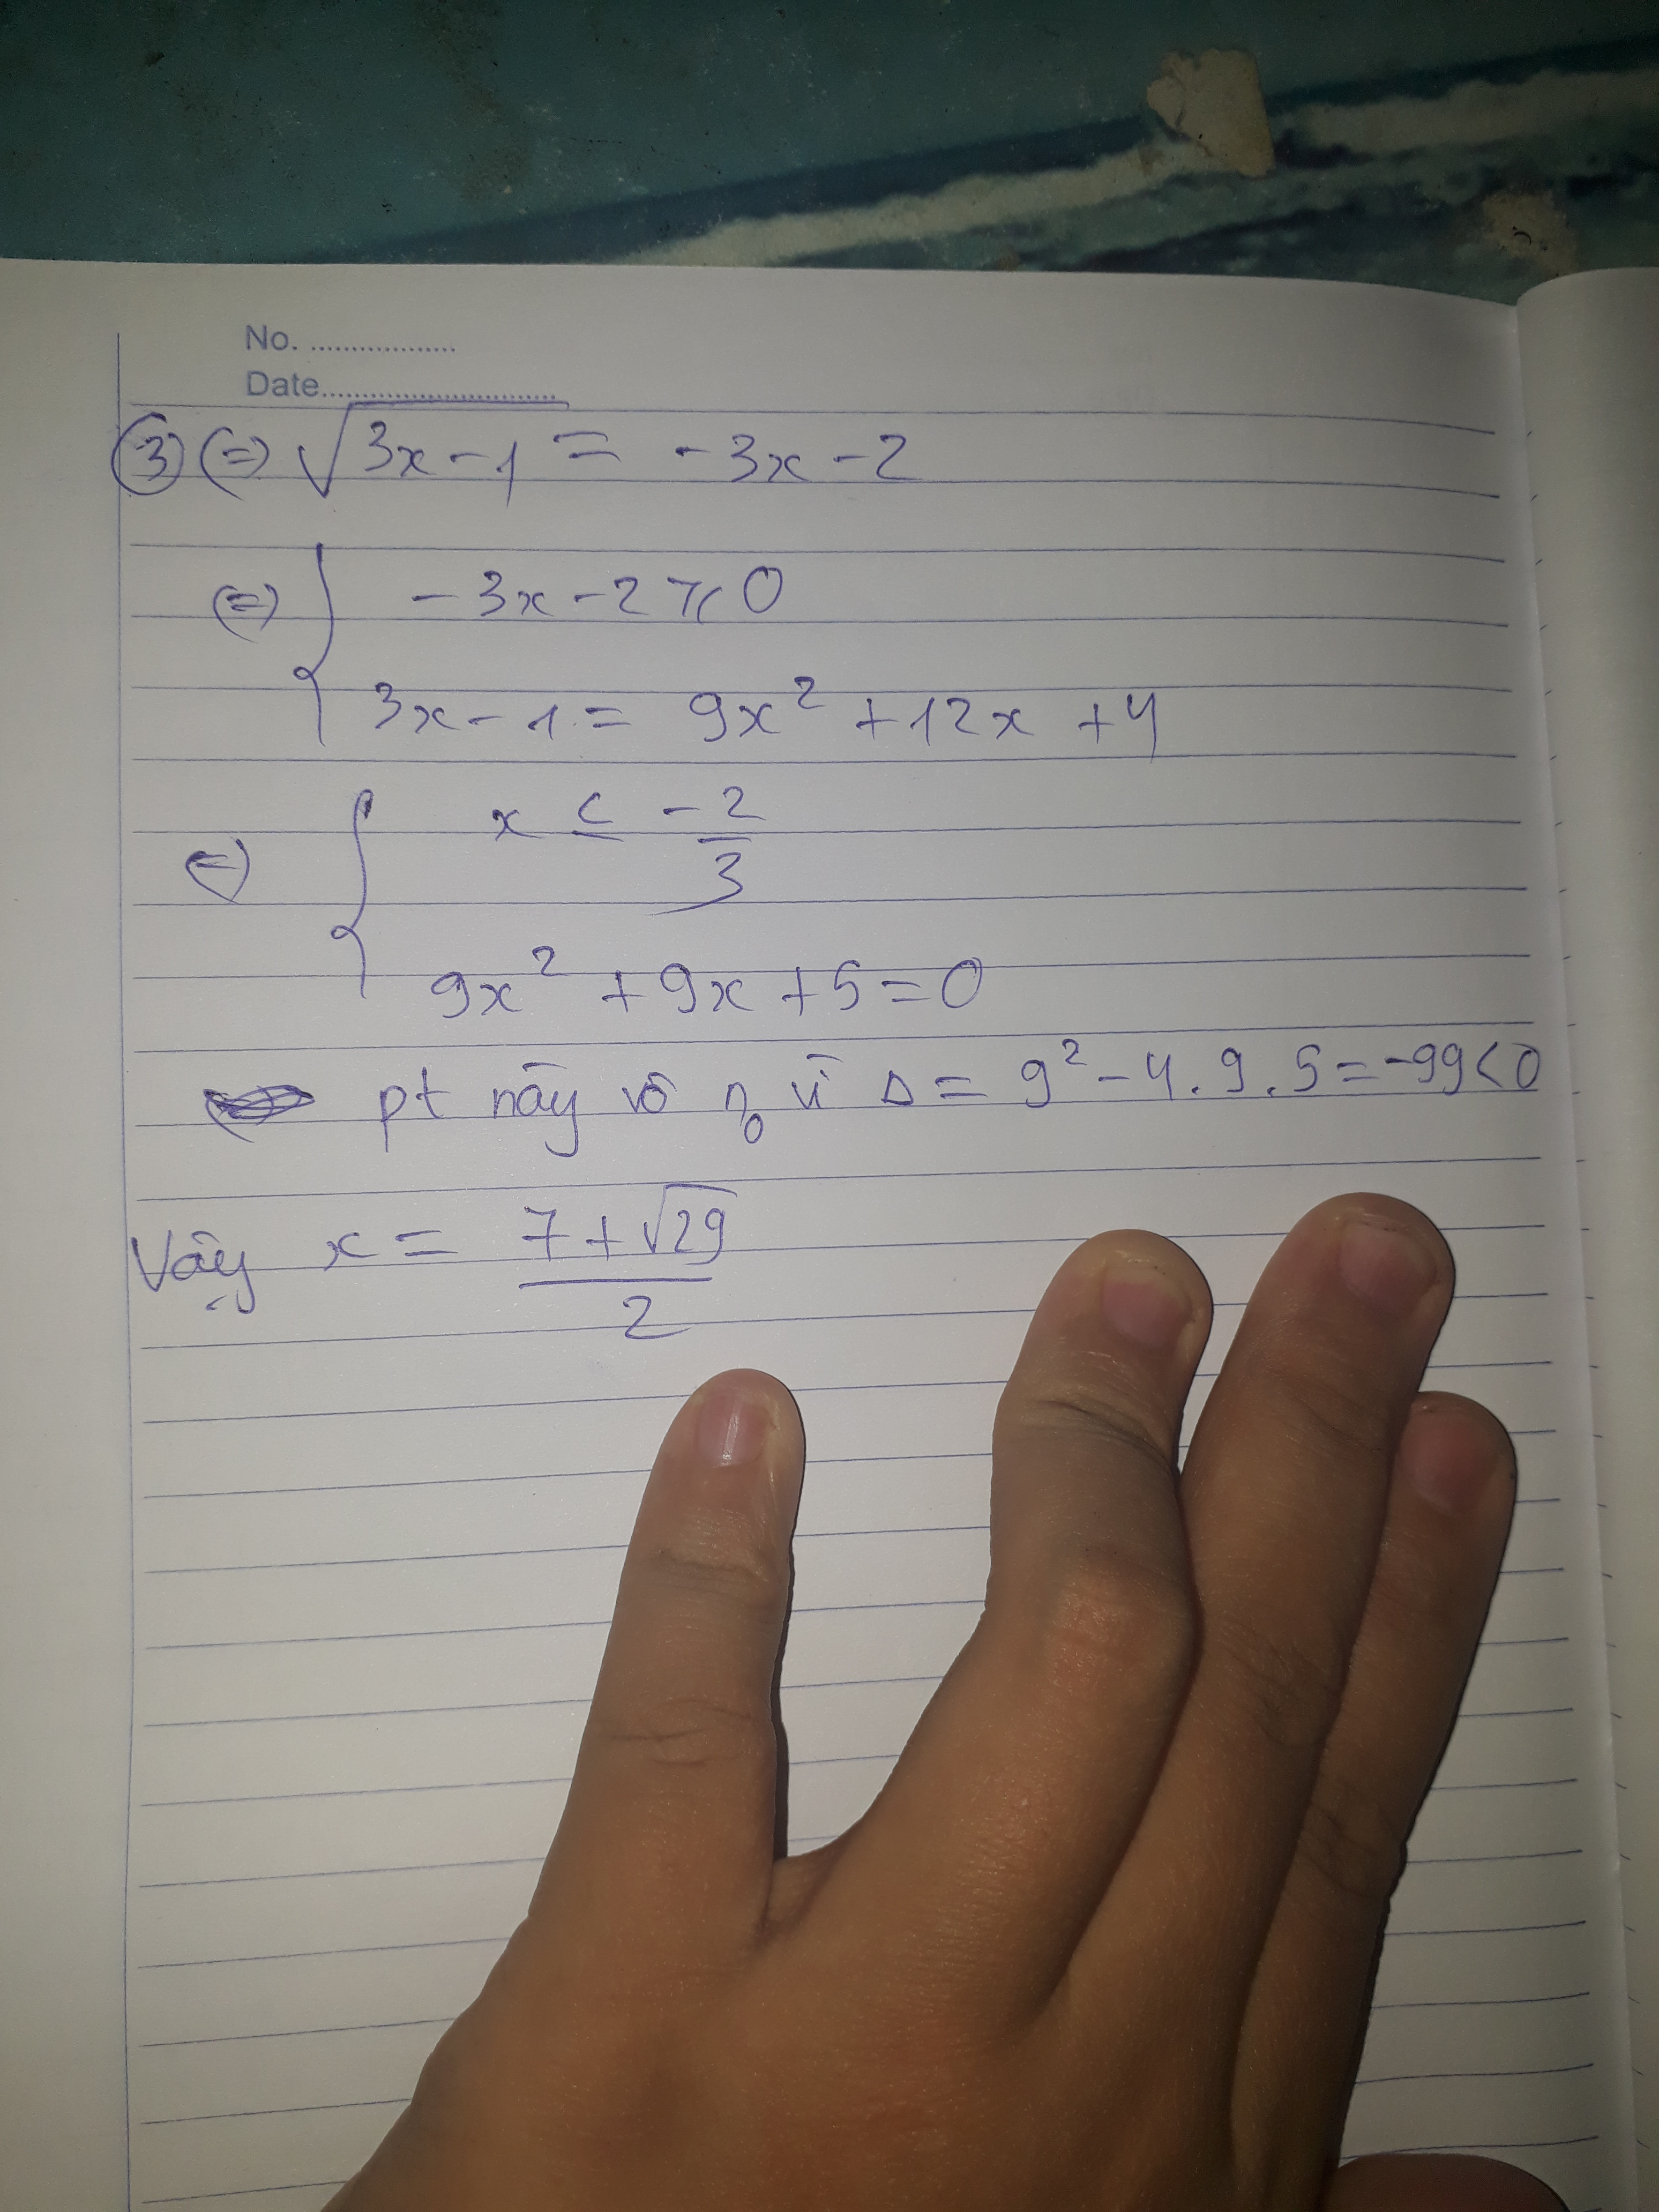 No. ..................
Date.............................
③ (=) √(3x-1) = -3x-2
(=) { -3x-2 ≥ 0
3x-1 = 9x² +12x +4
(=) { x ≤ -2/3
9x² +9x +5 = 0
pt này vô n₀ vì Δ = 9² - 4.9.5 = -99<0
Vậy x = (7+√29)/2